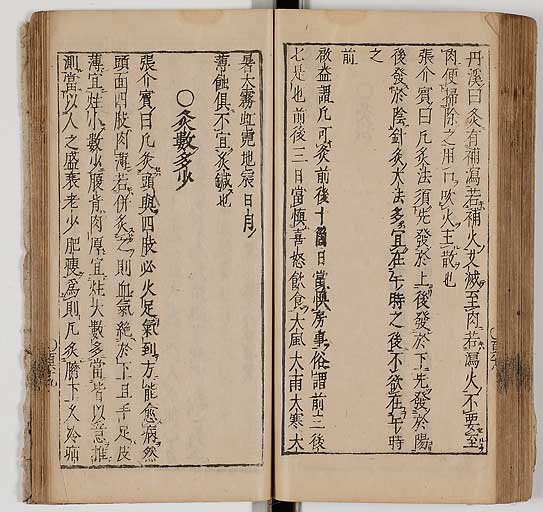 丹溪曰灸有補瀉若補火艾滅至肉若瀉火不要至
肉便掃除之用口吹火主散也
張介賓曰凡灸法須先發於上後發於下先發於陽
後發於陰針灸大法多宜在午時之後不欲在午時
之
前
啟益謂凡可灸前後十日當慎房事俗謂前三後
七是也前後三日當慎喜怒飲食大風大雨大寒大
暑大霧虹霓地震日月
薄蝕俱不宜灸鍼也
○灸數多少
張介賓曰凡灸頭與四肢必火足氣到方能愈病然
頭面四肢肉薄若併灸之則血氣絶於下且手足皮
薄宜炷小數少腹背肉厚宜炷大數多當皆以意推
測當以人之盛衰老少肥瘦為則凡灸臍下久冷病